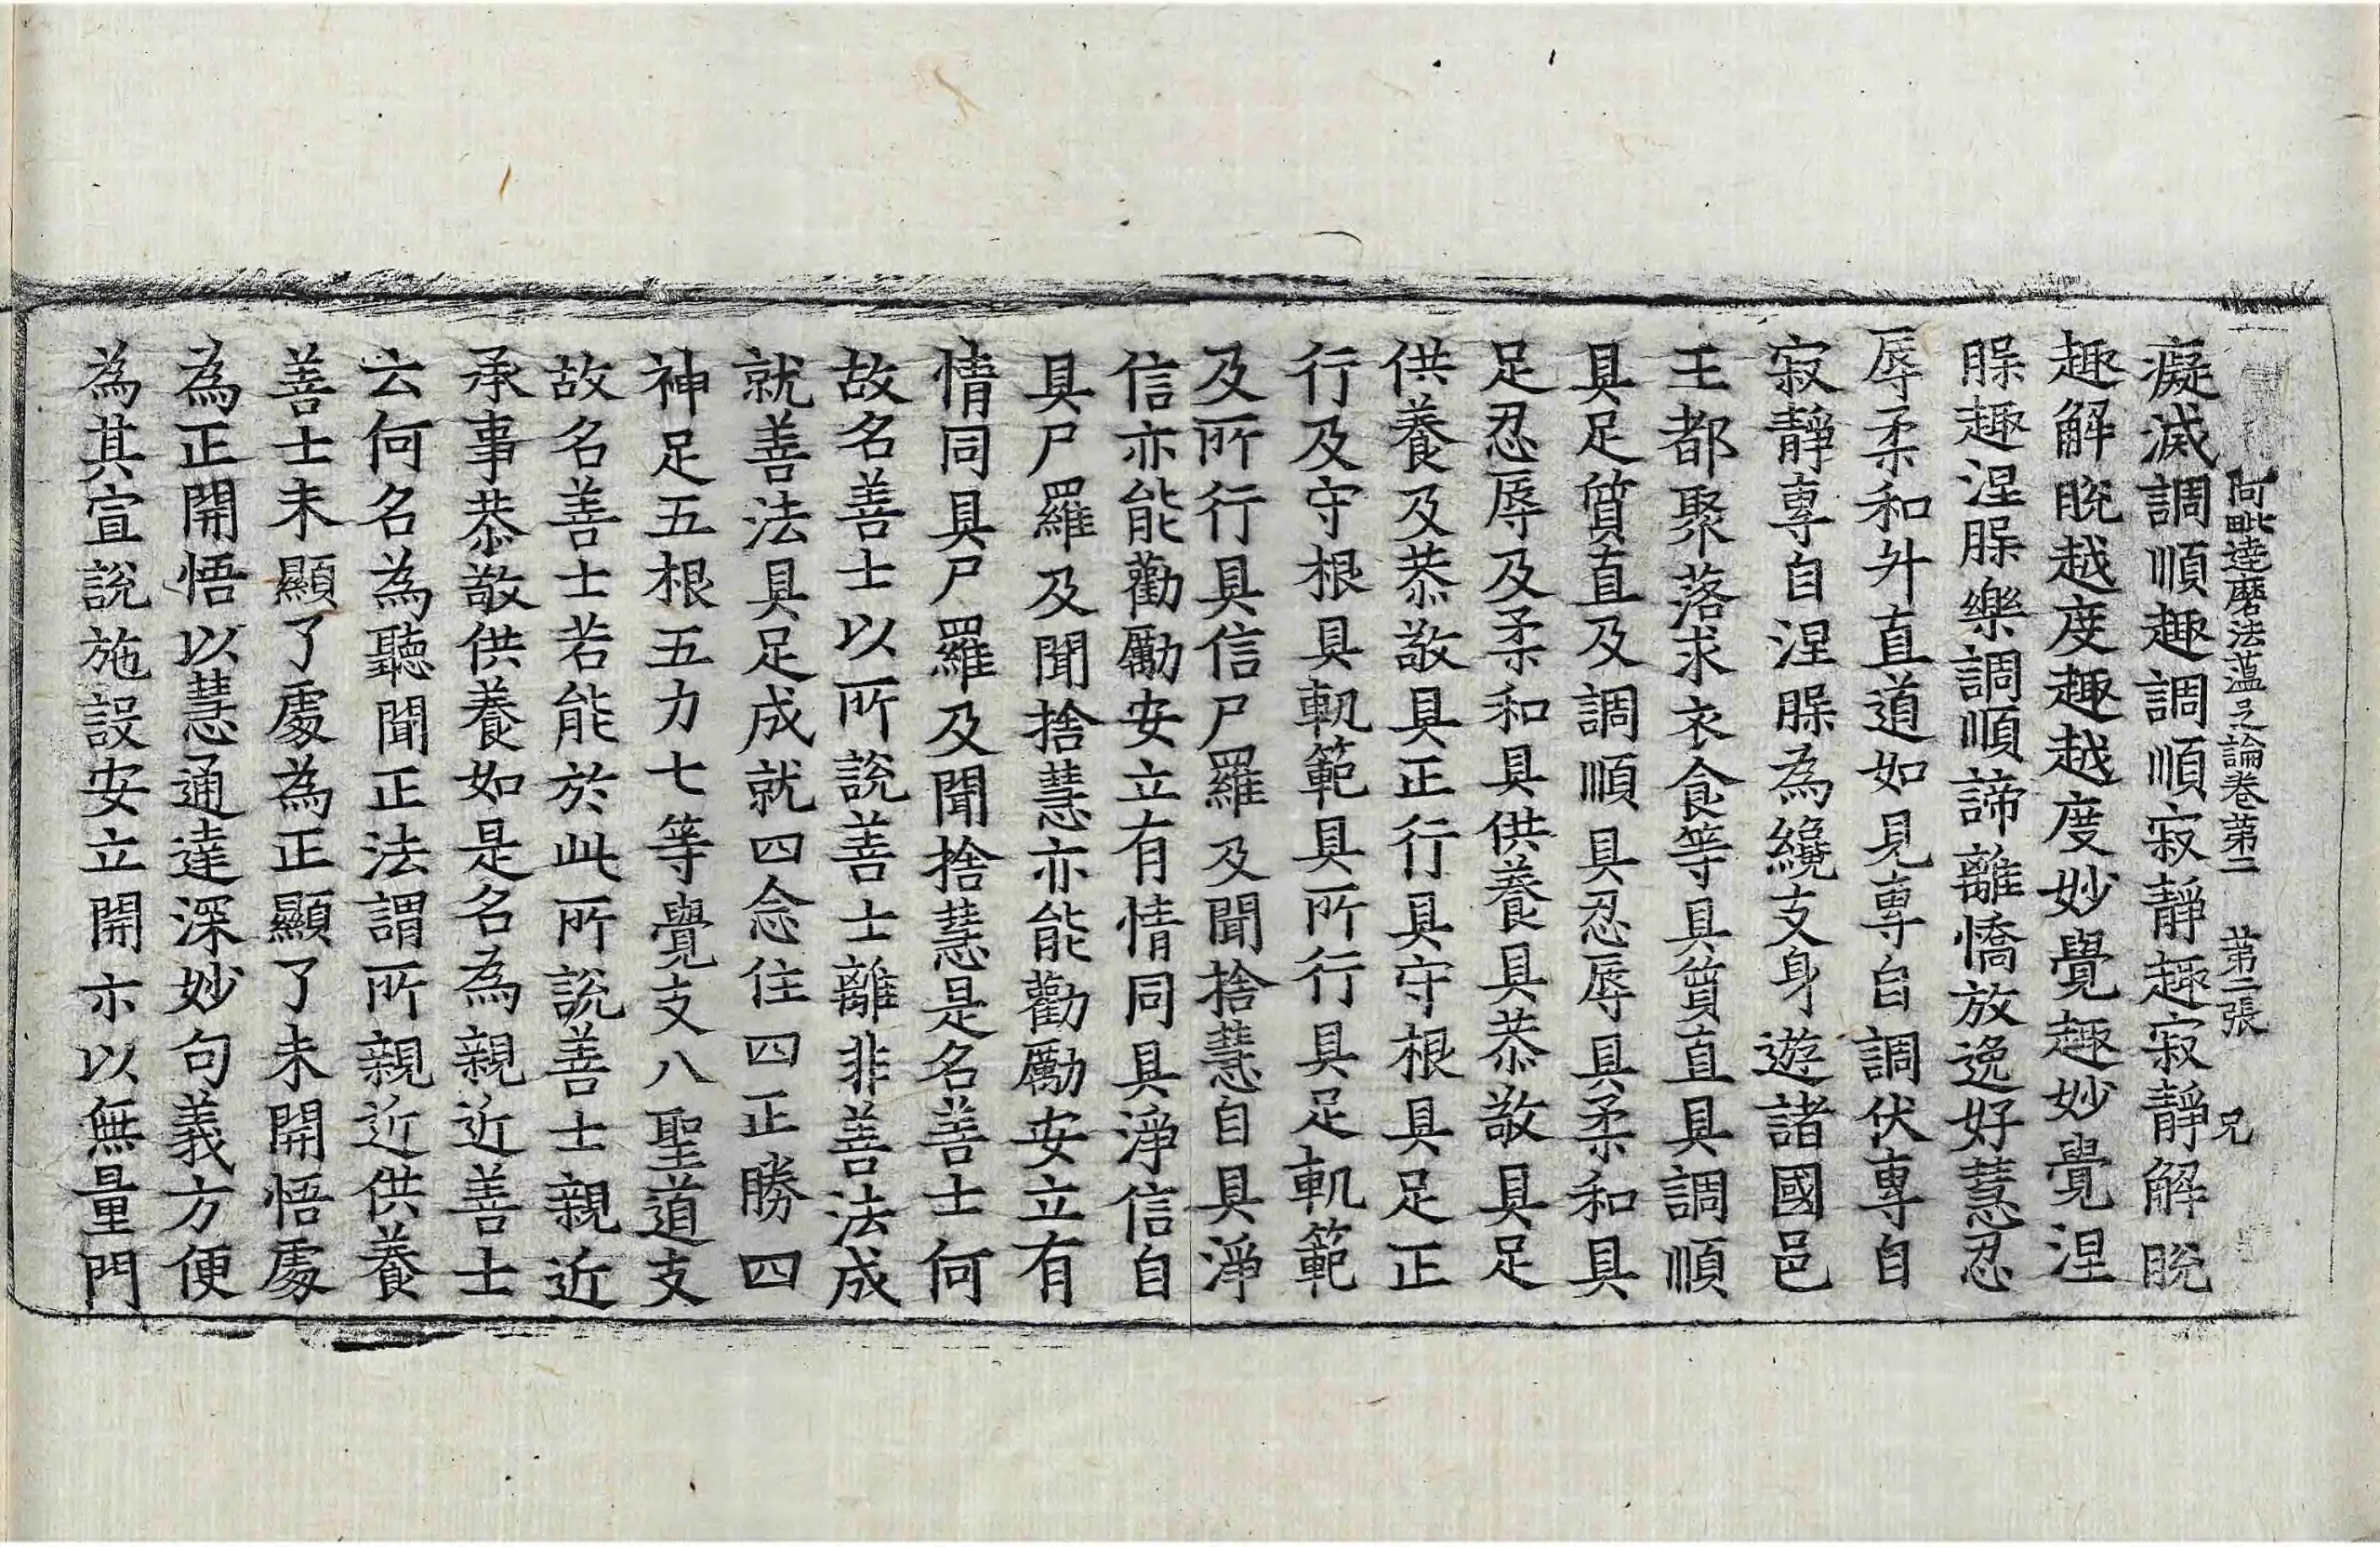 阿毗達磨法蕰足論卷苐二 苐二張 兄
癡滅調順趣調順寂靜趣寂靜解脫
趣解脫越度趣越度妙覺趣妙覺涅
槃趣涅槃樂調順諦離憍放逸好慧忍
辱柔和升直道如見專自調伏專自
寂靜專自涅槃為纔支身遊諸國邑
王都聚落求衣食等具質直具調順
具足質直及調順具忍辱具柔和具
足忍辱及柔和具供養具恭敬具足
供養及恭敬具正行具守根具足正
行及守根具軌範具所行具足軌範
及所行具信尸羅及聞捨慧自具淨
信亦能勸勵安立有情同具淨信自
具尸羅及聞捨慧亦能勸勵安立有
情同具尸羅及聞捨慧是名善士何
故名善士以所說善士離非善法成
就善法具足成就四念住四正勝四
神足五根五力七等覺支八聖道支
故名善士若能於此所說善士親近
承事恭敬供養如是名為親近善士
云何名為聽聞正法謂所親近供養
善士未顯了處為正顯了未開悟處
為正開悟以慧通達深妙句義方便
為其宣說施設安立開示以無量門